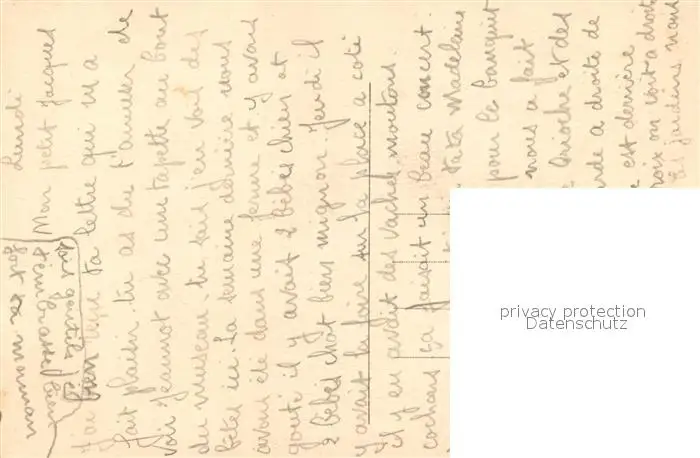 Lundi
Mon petit Jacques
J'ai bien reçu ta lettre qui m'a
fait plaisir. tu as du t'amuser de
voir Jeannot avec une tapette au bout
du museau. tu sais j'en vois des
bêtes ici. La semaine dernière nous
avons été dans une ferme et y avais
gouté il y avait 2 bébés chiens et
2 bébés chat bien mignon. Jeudi il
y avait la foire sur la place a coté
il y en avait des vaches, moutons.
cochons ça faisait un beau concert.
tata Madelaine
pour le banquet
nous a fait
brioche et des
a droite de
est dernière
croix on voit a droite
les jardins nous
sois gentil je
t'embrasse bien
fort ta maman
privacy protection
Datenschutz